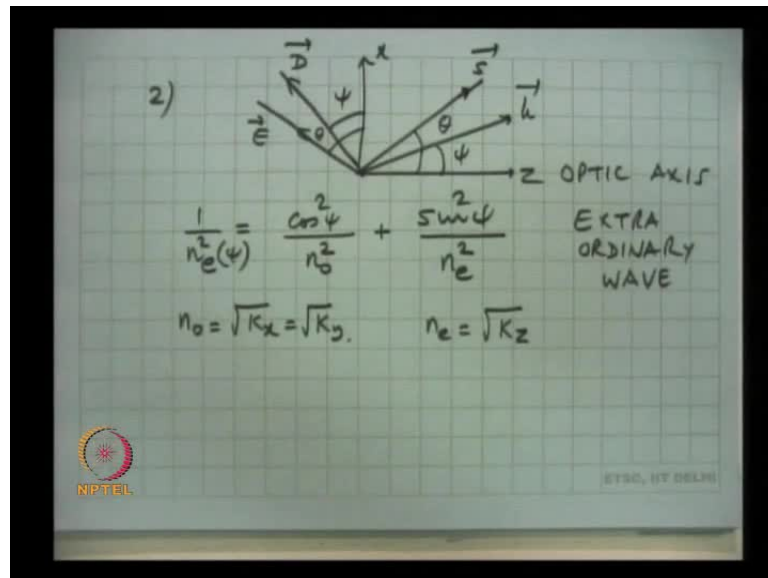 2)
D x S
ψ
E θ θ k
ψ
Z OPTIC AXIS
1/n_e²(ψ) = cos²ψ/n_o² + sin²ψ/n_e² EXTRA
ORDINARY
WAVE
n_o = √K_x = √K_y. n_e = √K_z
NPTEL
ETSC, IIT DELHI